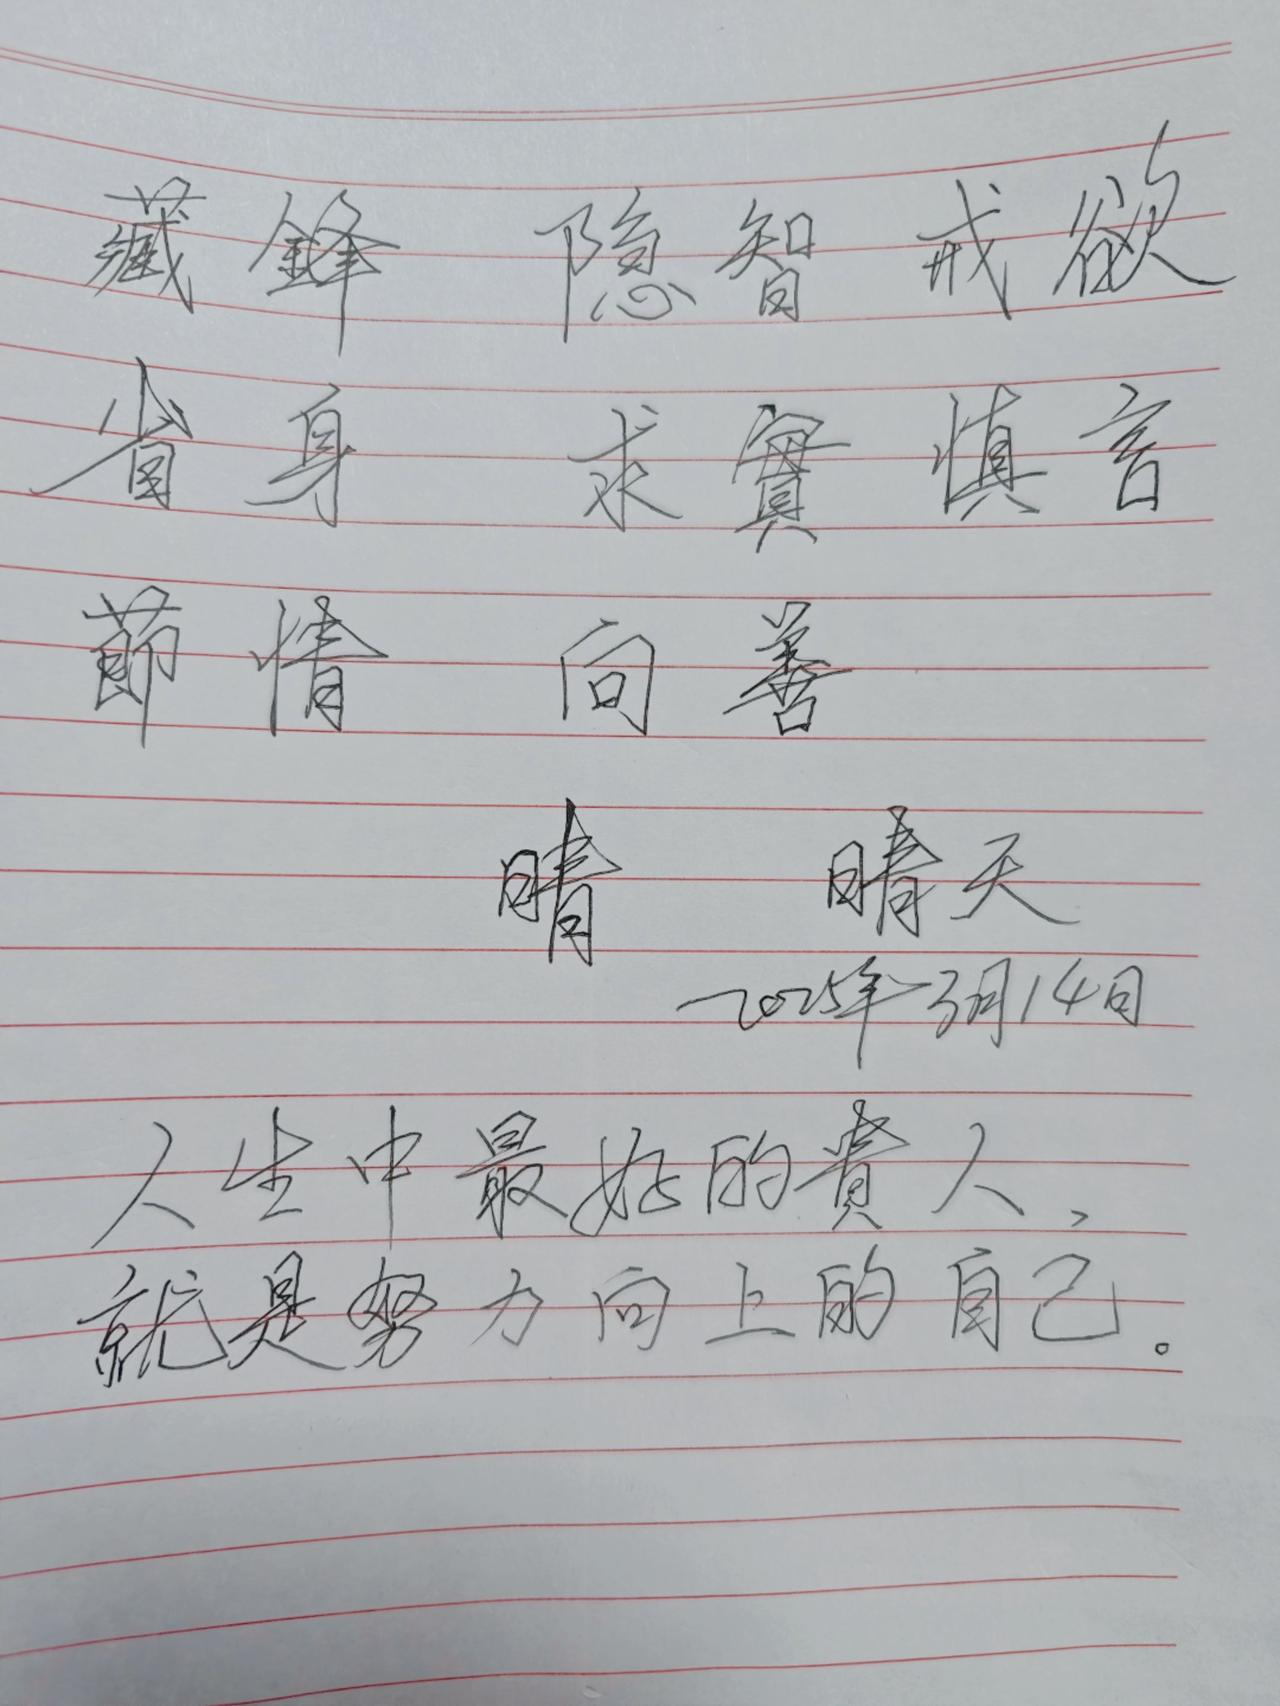 藏鋒 隐智 戒欲
省身 求實 慎言
節情 向善
晴 晴天
2025年3月14日
人生中最好的貴人、
就是努力向上的自己。